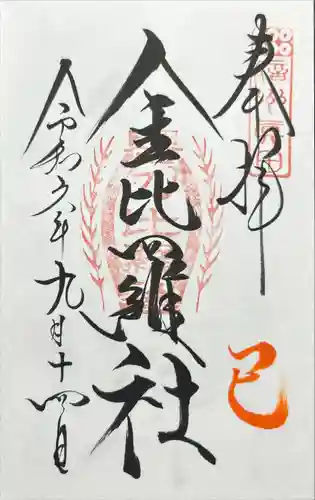 奉拝
巳
金比羅社
令和六年九月十四日